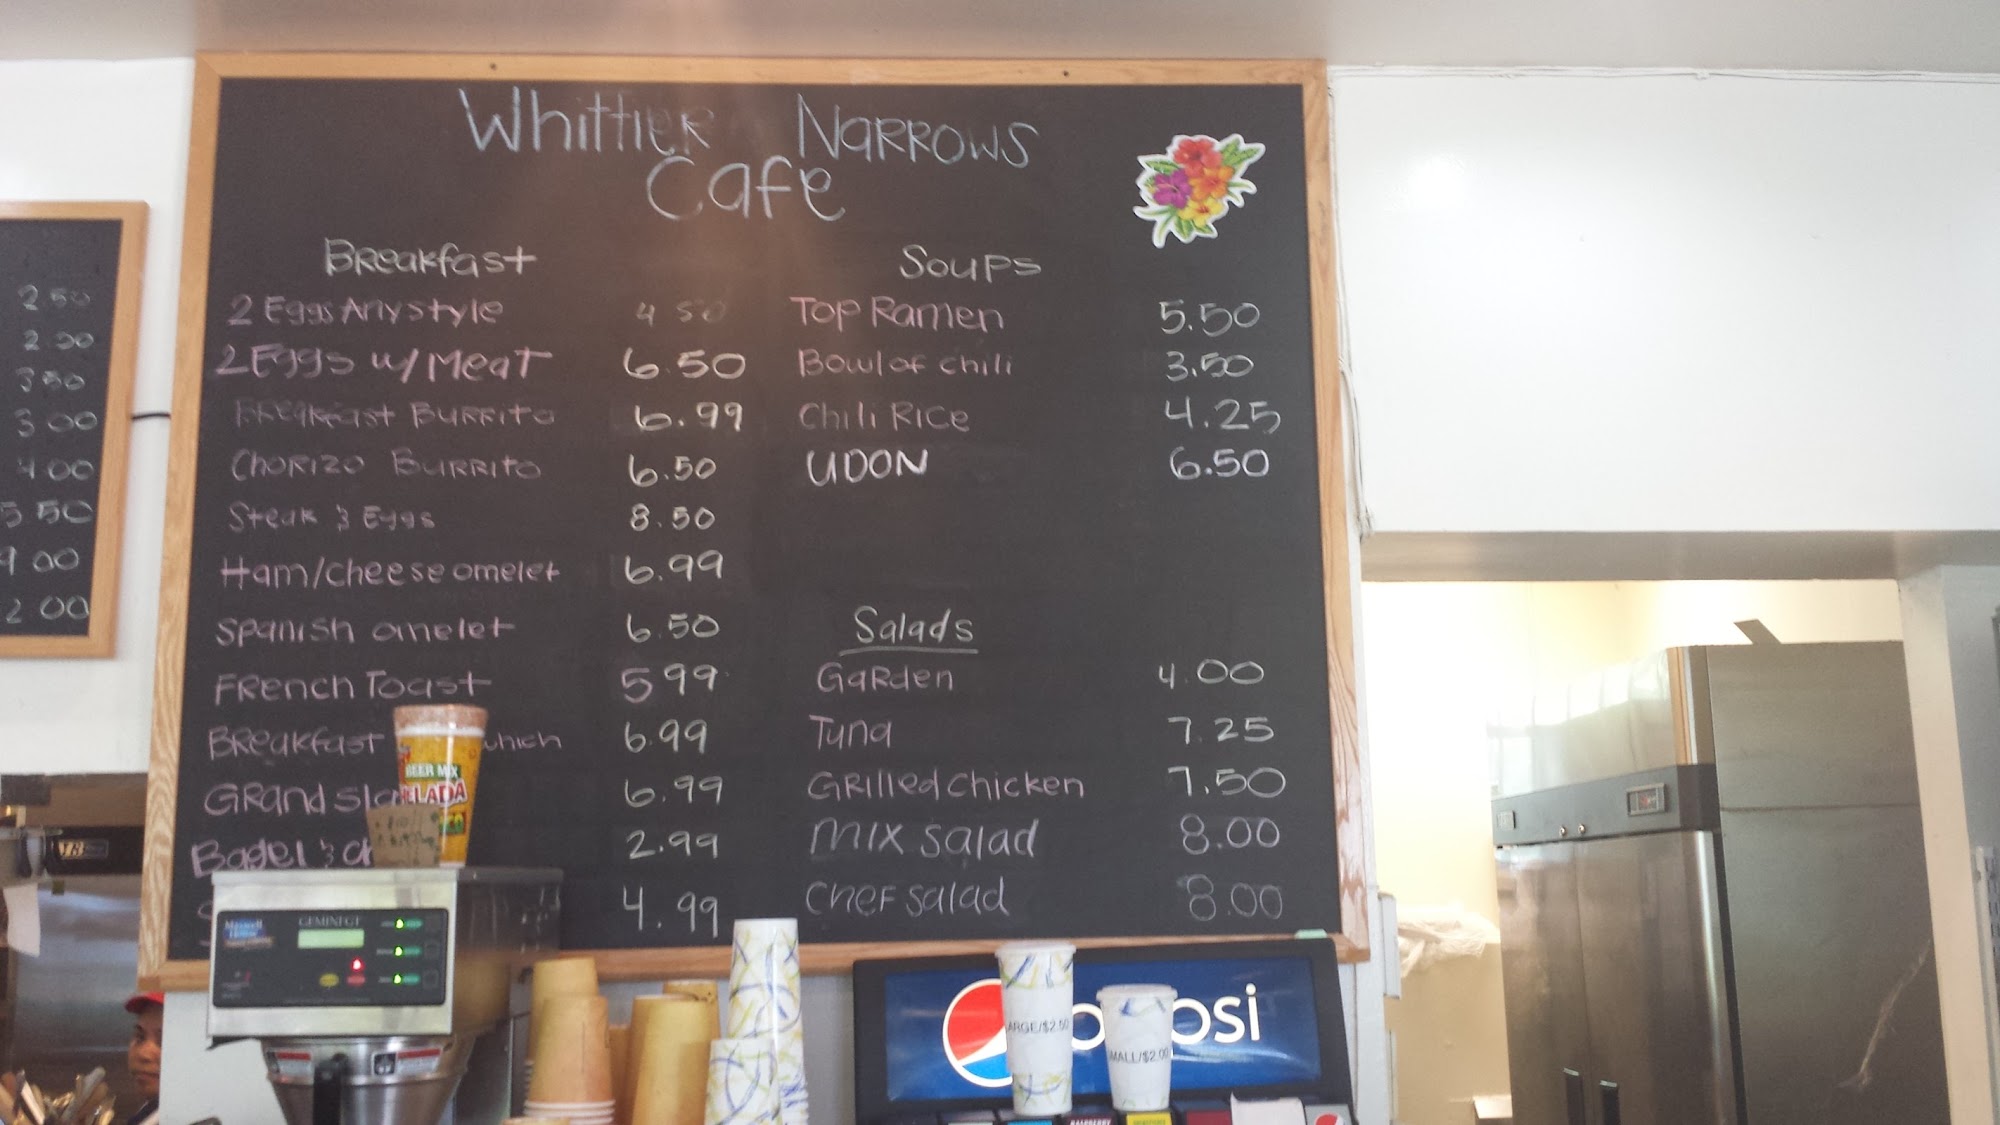 Whittier Narrows
Cafe
Breakfast
2 Eggs Any style 4 50
2 Eggs w/ Meat 6.50
Breakfast Burrito 6.99
Chorizo Burrito 6.50
Steak & Eggs 8.50
Ham/cheese omelet 6.99
Spanish omelet 6.50
French Toast 5 99
Breakfast 6.99
Grand 6.99
Bagel & 2.99
4.99
Soups
Top Ramen 5.50
Bowl of chili 3.50
Chili Rice 4.25
UDON 6.50
Salads
Garden 4.00
Tuna 7.25
Grilled chicken 7.50
Mix salad 8.00
Chef salad 8.00
2 50
3 50
3 00
4 00
5 50
9 00
2 00
BEER MIX
HELADA
Maxwell House
GEMINI GT
ARGE/$2.50
MALL/$2.00
osi
RASPBERRY